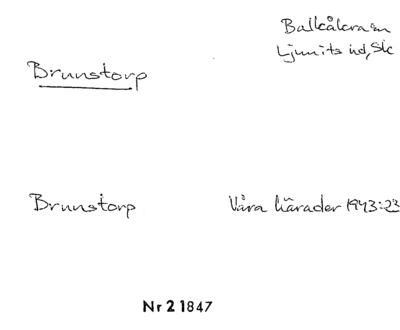 Balkåkra sn
Ljunits hd, Sk
Brunstorp
Brunstorp Våra härader 1943:23
Nr 21847